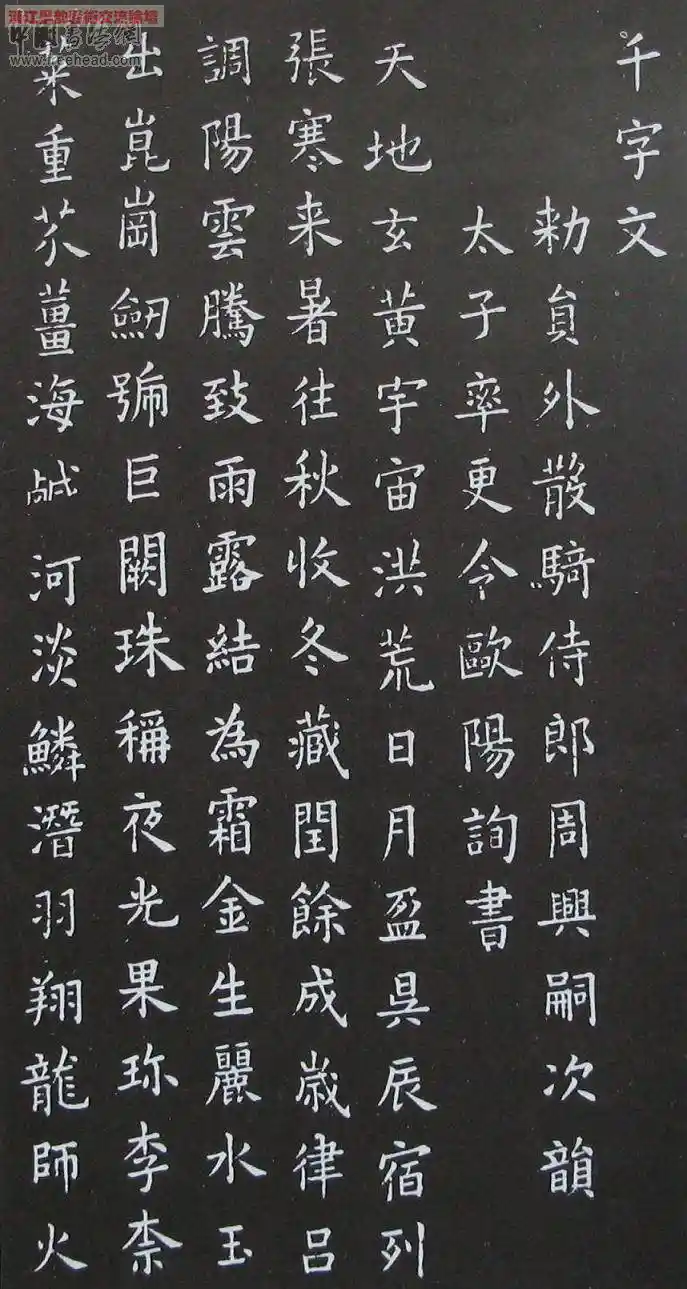 浦江吳敏書術交流論壇
中國書法網
www.freehead.com
千字文
勑貟外散騎侍郎周興嗣次韻
太子率更令歐陽詢書
天地玄黃宇宙洪荒日月盈昃辰宿列
張寒来暑往秋收冬藏閏餘成歲律呂
調陽雲騰致雨露結為霜金生麗水玉
出崑崗劒號巨闕珠稱夜光果珎李柰
菜重芥薑海鹹河淡鱗潛羽翔龍師火